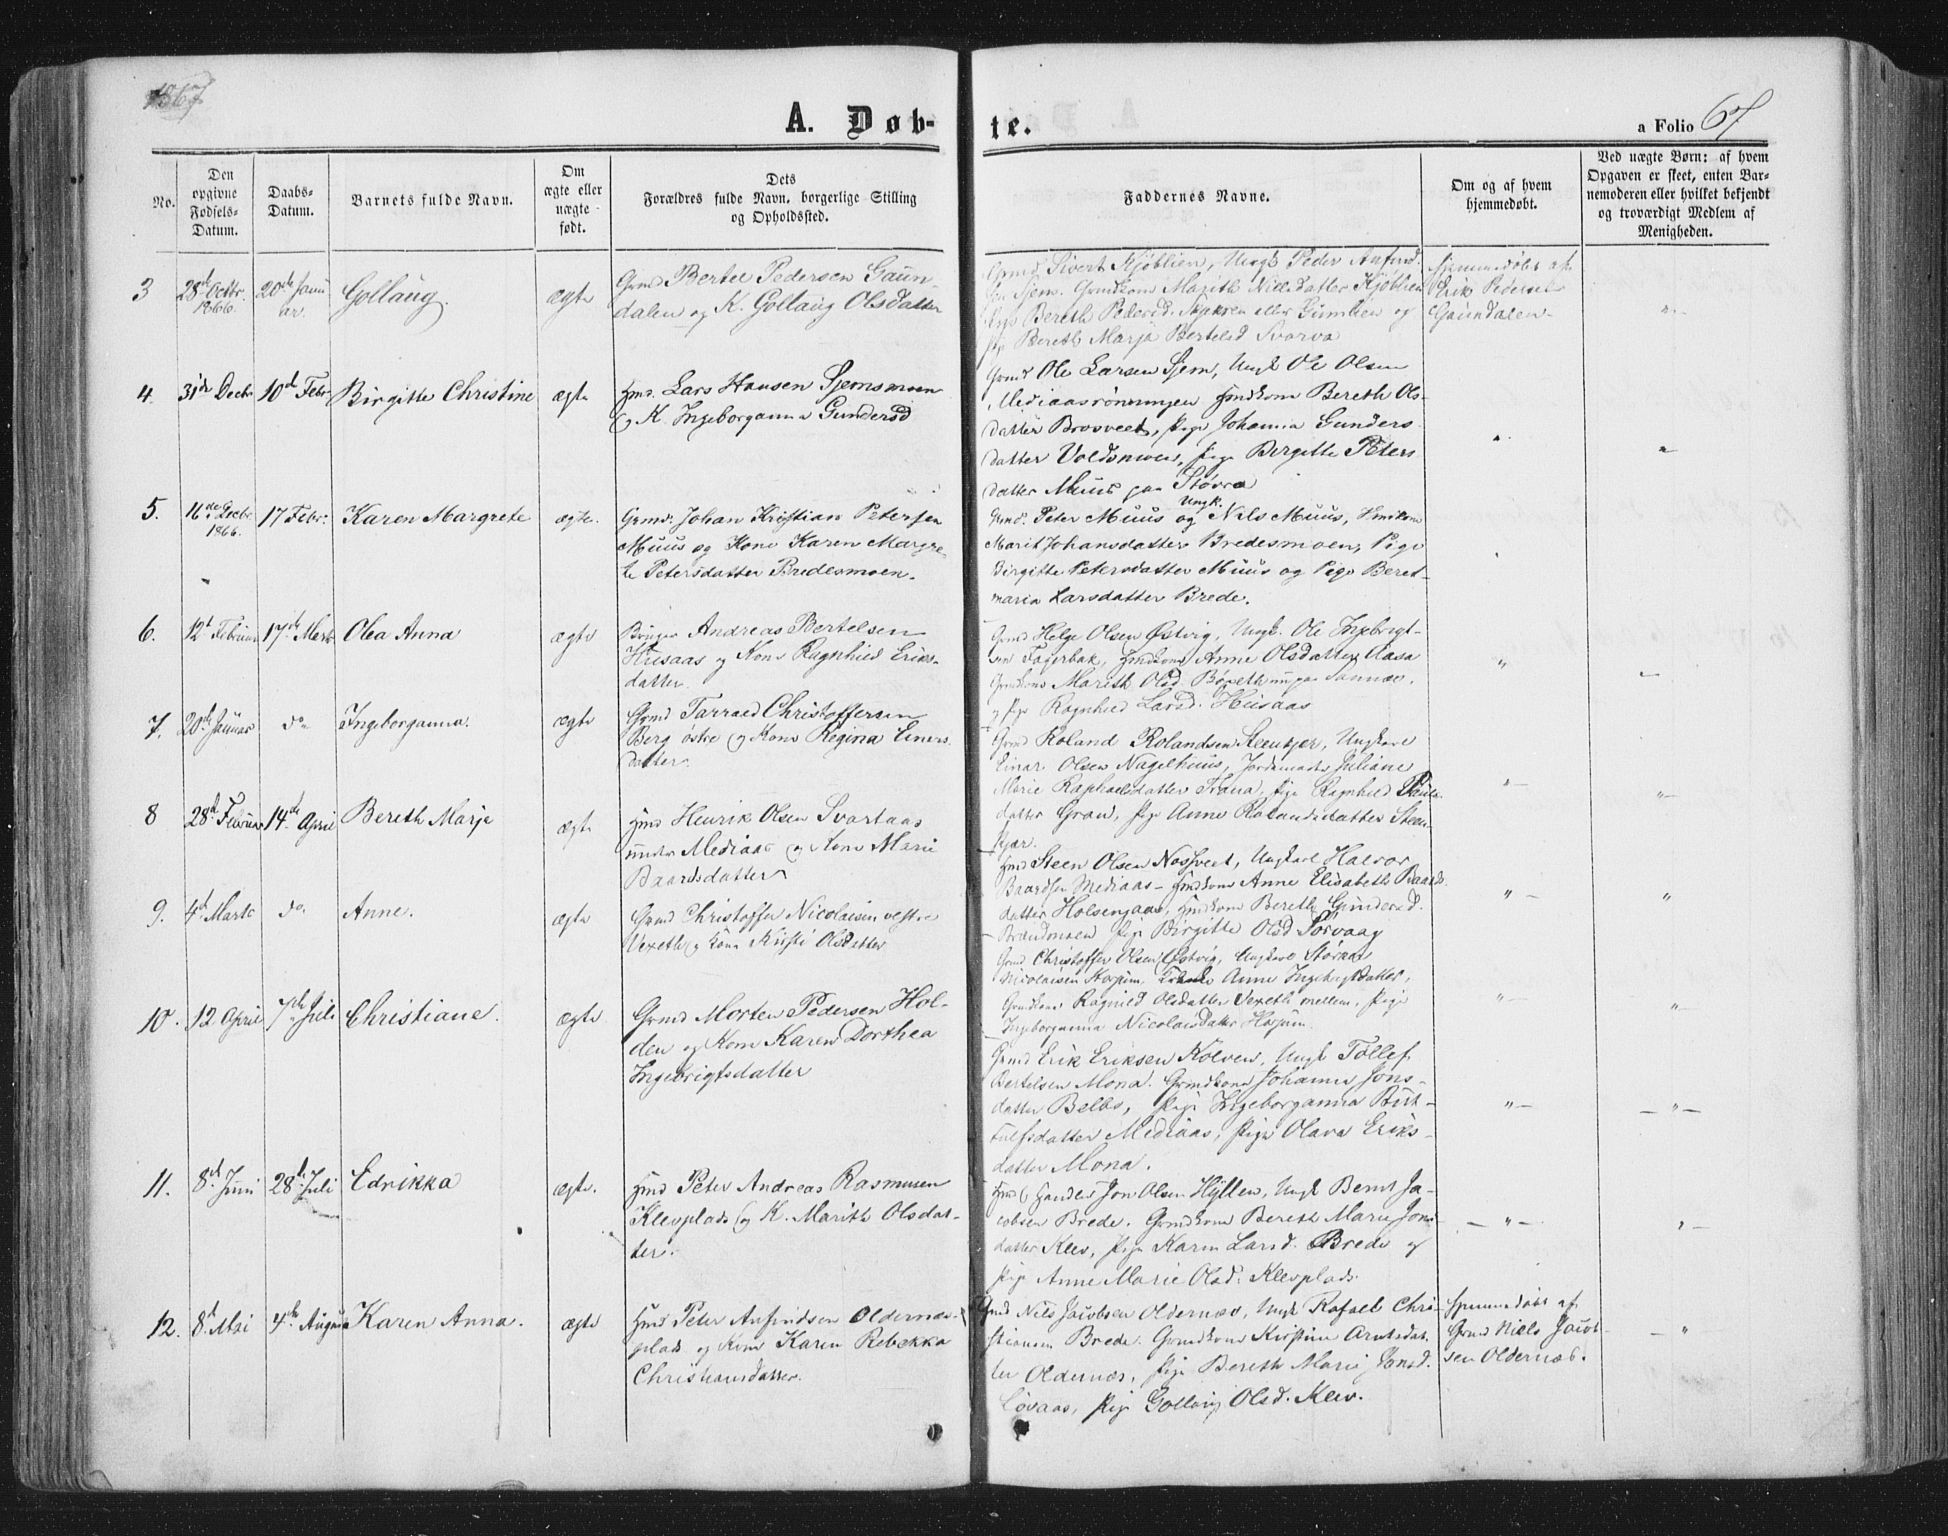 1867
A. Døb-
te.
a Folio 67
No.
Den opgivne Fødsels-Datum.
Daabs-Datum.
Barnets fulde Navn.
Om ægte eller uægte født.
Dets Forældres fulde Navn, borgerlige Stilling og Opholdssted.
Faddernes Navne.
Om og af hvem hjemmedøbt.
Ved uægte Børn: af hvem Opgaven er skeet, enten Barnemoderen eller hvilket bekjendt og troværdigt Medlem af Menigheden.
3
28de Octbr. 1866.
20de Januar
Gollaug.
ægte
Grmd Bertel Pedersen Gaun-
dalen og K. Gollaug Olsdatter
Grmd. Sivert Kjøblien, Ungk Peder Anfind.
sen Sjem. Grmdkone Marith Nielsdatter Kjøblien
Pige Bereth Pedersd. eller Gumlien og
Pige Bereth Marja Bertelsd Svarva
Hjemmedøbt af
Erik Pedersen
Gaundalen
4.
31te Decbr
10de Febr.
Birgitte Christine
ægte
Hmd. Lars Hansen Sjemsmoen
og K. Ingeborganna Gundersd
Grmd Ole Larsen Sjem, Ungk Ole Olsen
Mediaasrönningen Hmdkone Bereth Ols-
datter Brosveet, Pige Johanna Gunders
datter Voldsmoen, Pige Birgitte Peters
datter Muus paa Støvra
5.
16de Decbr. 1866.
17 Febr.
Karen Margrete
ægte.
Grmd. Johan Kristian Petersen
Muus og Kone Karen Margre-
te Petersdatter Bredesmoen.
Grmd. Peter Muus og Ungk. Nils Muus, Hmdkone
Marit Johansdatter Bredesmoen, Pige
Birgitte Petersdatter Muus og Pige Beret-
maria Larsdatter Brede.
6.
12t Februar
17de Marts
Olea Anna
ægte
Andreas Bertelsen
Husaas og Kone Ragnhild Eriks-
datter.
Grmd Helge Olsen Østvig, Ungk. Ole Ingebrigt-
sen Fagerbak, Hmdkone Anne Olsdatter Aasa
Grmdkone Marith Olsd. paa Sannæs,
og Pige Ragnhild Larsd. Husaas
7.
20de Januar
do
Ingeborganna.
ægte
Grmd Tarrald Christoffersen
Berg østre og Kone Regina Einers
datter.
Grmd Roland Rolandsen Steenkjær, Ungkarl
Einar Olsen Nagelhuus, Jordemoder Juliane
Marie Raphaelsdatter Trana, Pige Ragnhild Pauls
datter Gran, Pige Anne Rolandsdatter Steen-
kjær.
8
28de Februar
14de April
Bereth Marje
ægte
Hmd Henrik Olsen Svartaas
under Mediaas og Kone Marie
Baardsdatter
Hmd Steen Olsen Nosveet, Ungkarl Halvor
Baardsen Mediaas - Hmdkone Anne Elisabeth Baards-
datter Holsengaas, Hmdkone Bereth Gundersd.
Brændmoen Pige Birgitte Olsd Sørvaag
9.
4de Marts
do.
Anne.
ægte
Grmd Christoffer Nicolaisen vestre
Vexeth og Kone Kristi Olsdatter
Grmd Christoffer Olsen Østvig, Ungkarl Størker
Nicolaisen Hojum, Anne Ingebrigtsdatter,
Grmdkone Ragnild Olsdatter Vexeth mellem, Pige
Ingeborganna Nicolaisdatter Hojum.
10.
12 April
7de Juli
Christiane.
ægte
Grmd Morten Pedersen Hol-
den og Kone Karen Dorthea
Ingebrigtsdatter
Grmd Erik Eriksen Kolven, Ungk Tollef
Bertelsen Mona. Grmdkone Johanna Jons-
datter Belbo, Pige Ingeborganna But-
tulfsdatter Mediaas, Pige Olava Eriks-
datter Mona.
11.
8de Juni
28de Juli
Edrikka
ægte.
Hmd Peter Andreas Rasmusen
Klevplads og K. Marith Olsdat-
ter.
Hmd Jon Olsen Hyllen, Ungk Bernt Ja-
cobsen Brede. Grmdkone Bereth Marie Jons
datter Klev, Pige Karen Larsd. Brede og
Pige Anne Marie Olsd. Klevplads.
12.
8de Mai
4de August
Karen Anna.
ægte
Hmd Peter Anfindsen Oldernæs-
plads og Kone Karen Rebekka
Christiansdatter.
Grmd Nils Jacobsen Oldernæs, Ungk Rafael Chri-
stiansen Brede. Grmdkone Kirstine Arntsdat-
ter Oldernæs, Pige Bereth Marie Jonsd.
Lövaas, Pige Gollaug Olsd. Klev.
Hjemmedøbt af
Grmd Niels Jacob-
sen Oldernæs.